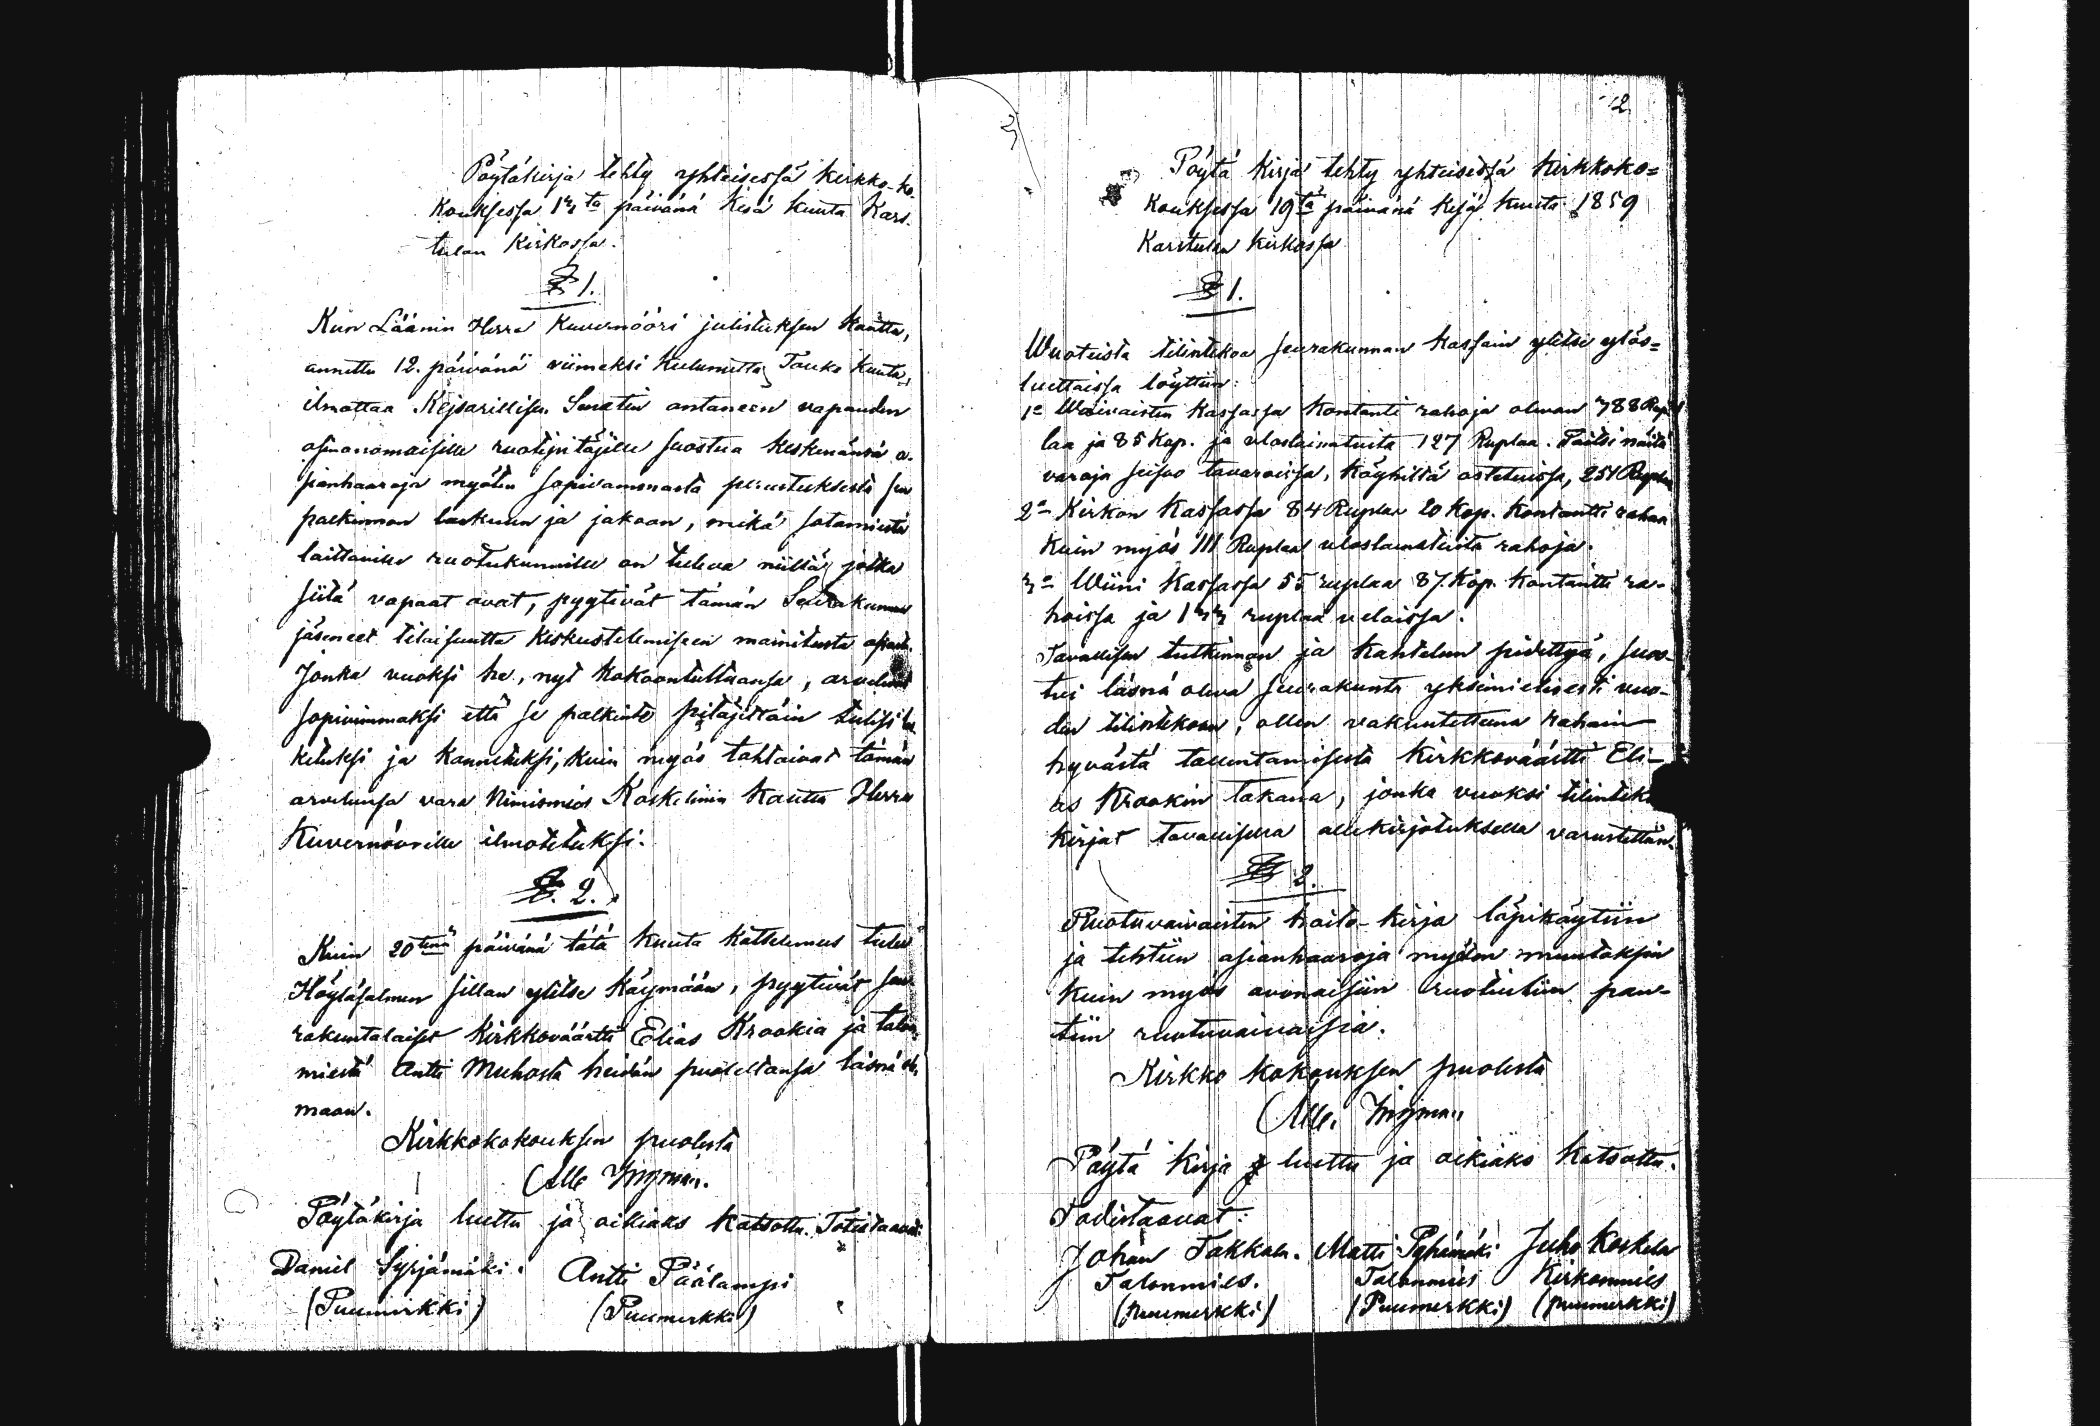 Pöytäkirja tehty yhteisessä kirkko-ko-
kouksessa 13ta päivänä Kesä kuuta Kars-
tulan Kirkossa.
§ 1.
Kun Läänin Herra Kuvernööri julistuksen kautta,
annettu 12. päivänä viimeksi kulunutta Touko kuuta,
ilmottaa Kejsarillisen Senatin antaneen vapauden
asianomaisille ruotipitäjille suostua keskenänsä a-
sianhaaroja myöten sopivammasta perustuksesta sen
palkinnon laskuun ja jakoon, mikä sotamiestä
laittaville ruotukunnille on tuleva niiltä, jotka
siitä vapaat ovat, pyytivät tämän Seurakunnan
jäsenet tilaisuutta keskustelemiseen mainitusta asiast.
Jonka vuoksi he, nyt kokoontultuansa, arvelivat
sopivimmaksi että se palkinto pitäjittäin tulisi las
ketuksi ja kannetuksi, kuin myös tahtoivat tämän
arvelunsa vara Nimismies Koskelinin kautta Herra
Kuvernöörille ilmotetuksi.
§. 2.
Kuin 20tenä päivänä tätä kuuta katselemus tulee
Höytäsalmen sillan ylitse käymään, pyytivät seu
rakuntalaiset kirkkoväärtti Elias Krookia ja talon
miestä Antti Muhosta heidän puolestansa läsnä ole
maan.
Kirkkokokouksen puolesta
Alle Ingman.
Pöytäkirja luettu ja oikiaks katsottu. Totistaavat:
Daniel Syrjämäki. Antti Päälampi
(Puumerkki) (Puumerkki)
2
Pöytä Kirja tehty yhteisessä kirkkoko=
kouksessa 19tä päivänä Kesä kuuta 1859
Karstulan kirkossa
§ 1.
Wuotista tilintekoa seurakunnan kassain ylitse ylös=
luettaissa löyttiin:
1o Waivaisten kassassa kontanti rahoja olevan 788 Rup
laa ja 85 Kop. ja uloslainatuita 127 Ruplaa. Paitsi näitä
varoja seisoo tavaroissa, köyhiltä ostetuissa, 251 Ruplaa
2o Kirkon kassassa 84 Ruplaa 20 Kop. kontantti rahaa
kuin myös 111 Ruplaa uloslainatuita rahoja.
3o Wiini kassassa 55 ruplaa 87. Kop. kontantti ra-
hoissa ja 133 ruplaa veloissa.
Tavallisen tutkinnon ja kantelun pidettyä, suos-
tui läsnä oleva seurakunta yksimielisesti vuo-
den tilintekoon, ollen vakuutettuna rahain
hyvästä tallentamisesta kirkkoväärtti Eli-
as Krookin takana, jonka vuoksi tilinteko
kirjat tavallisella allekirjotuksella varustettiin.
§ 2.
Ruotuvaivaisten hoito-kirja läpikäytiin
ja tehtiin asianhaaroja myöden muutoksia
kuin myös avonaisiin ruotuihin pan-
tiin ruotuvaivaisia.
Kirkko kokouksen puolesta
Alle. Ingman
Pöytä kirja luettu ja oikiaks katsottu.
Todistaavat:
Johan Takkala. Matti Pyhämäki Juho Koskela
Talonmies. Talonmies Kirkonmies
(puumerkki) (Puumerkki) (puumerkki)